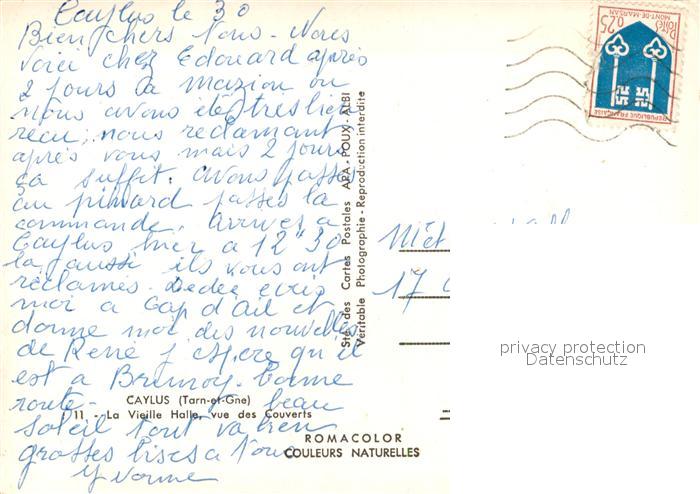 Caylus le 30
Bien chers Tous - Nous
voici chez Edouard après
2 jours à Mazion ou
nous avons été très bien
reçu, nous réclamant
après vous mais 2 jours
ça suffit. avons passé
au pinard passés la
commande. Arrivés à
Caylus hier à 12H30
la aussi ils vous ont
réclamés. Dédée écris
moi à Cap d'ail et
donne moi des nouvelles
de René j'espère qu'il
est à Brunoy. bonne
route - beau
soleil tout va bien
grosses bises à Tous
Yvonne
CAYLUS (Tarn-et-Gne)
11 - La Vieille Halle, vue des Couverts
ROMACOLOR
COULEURS NATURELLES
Sté des Cartes Postales APA-POUX - ALBI
Véritable Photographie - Reproduction interdite
17
POSTES
0,25
MONT-DE-MARSAN
REPUBLIQUE FRANÇAISE
privacy protection
Datenschutz